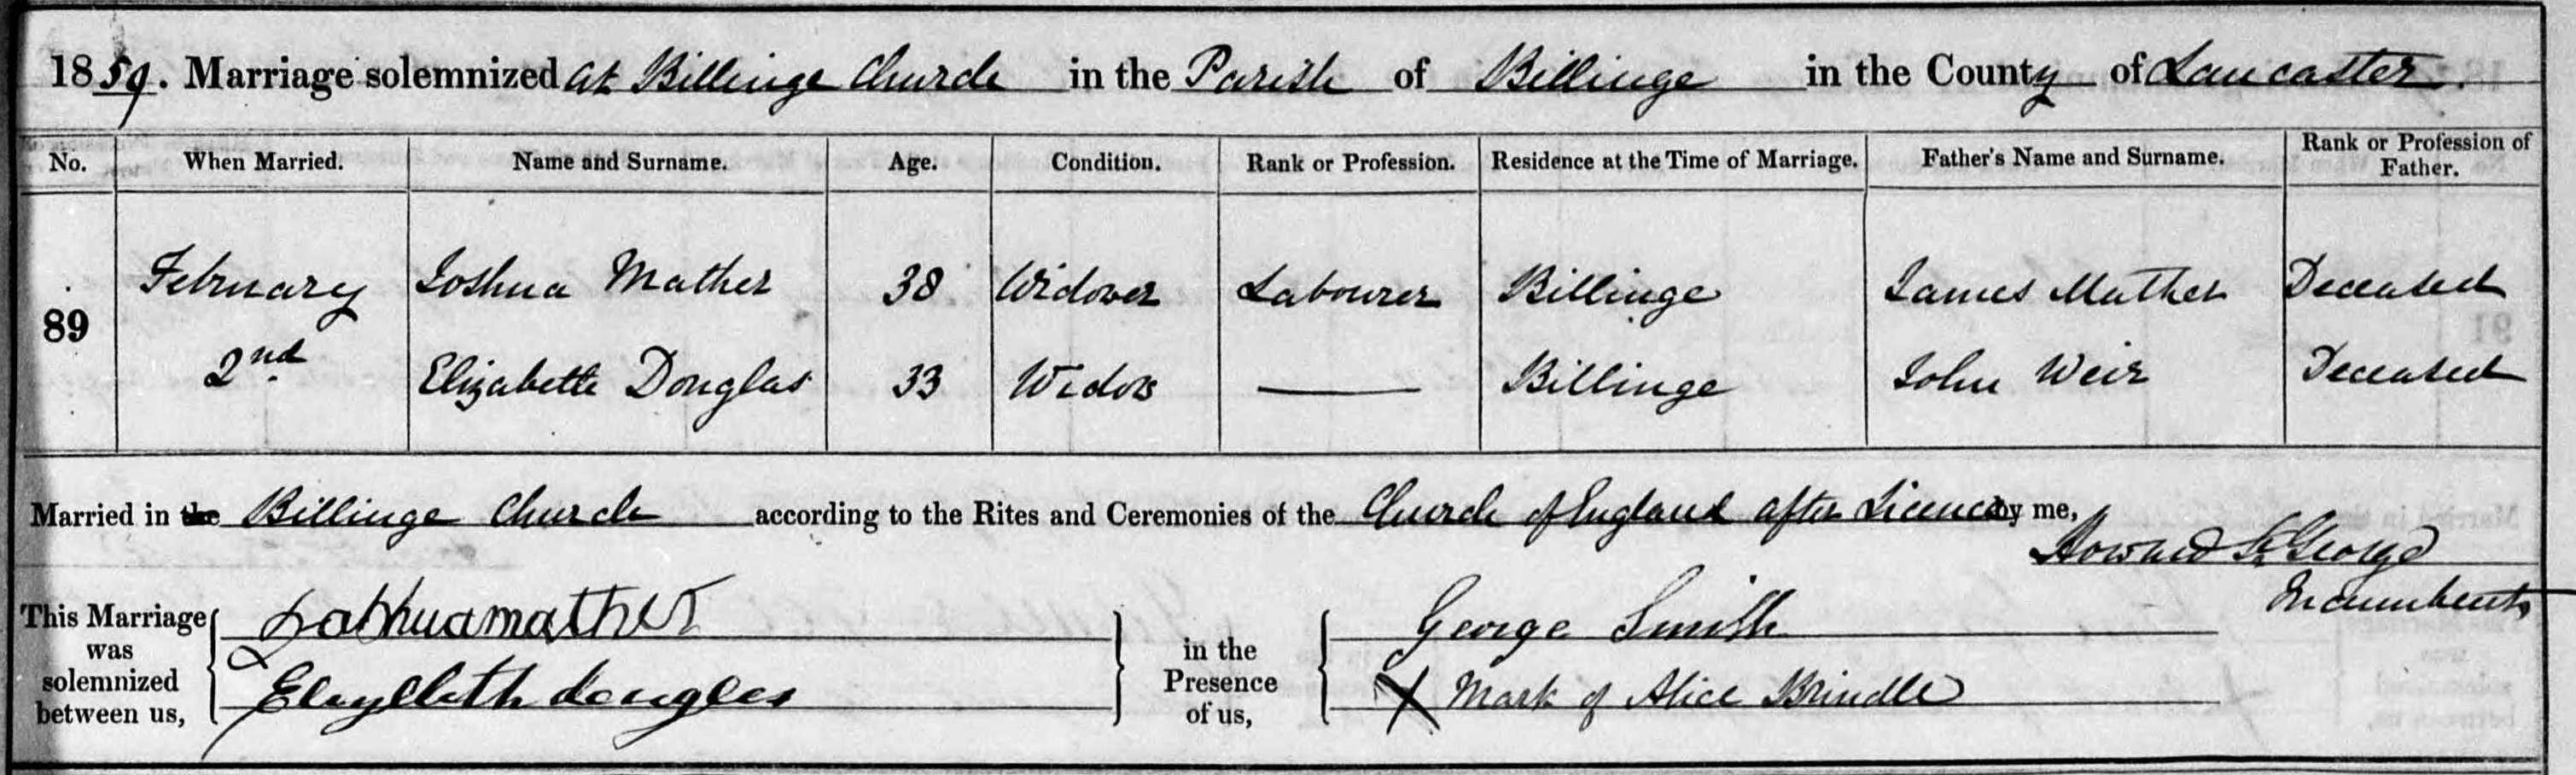 1859. Marriage solemnized at Billinge Church in the Parish of Billinge in the County of Lancaster.
No. When Married. Name and Surname. Age. Condition. Rank or Profession. Residence at the Time of Marriage. Father's Name and Surname. Rank or Profession of Father.
February Joshua Mather 38 Widower Labourer Billinge James Mather Deceased
89
2nd Elizabeth Douglas 33 Widow Billinge John Weir Deceased
Married in the Billinge Church according to the Rites and Ceremonies of the Church of England after Licence by me,
Howard St George
Incumbent
This Marriage was solemnized between us, Joshua mather in the Presence of us, George Smith
douglas X Mark of Alice Brindle